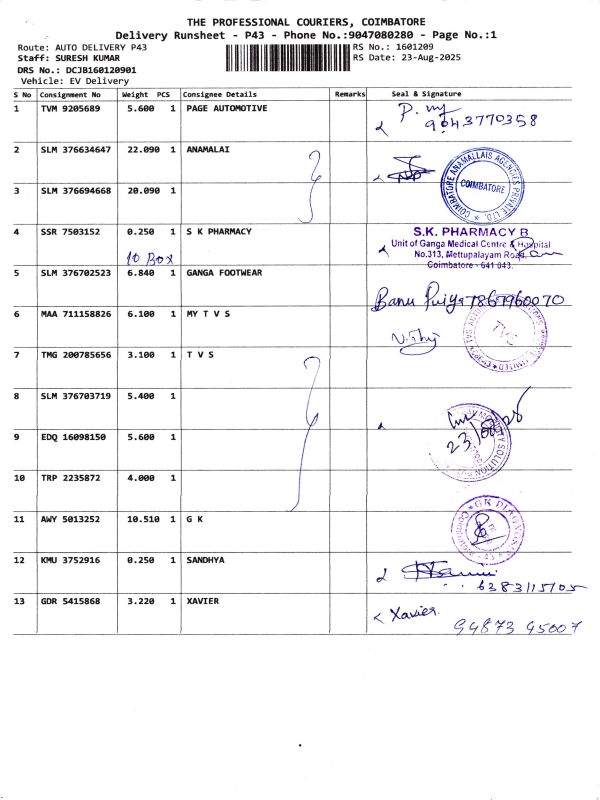 THE PROFESSIONAL COURIERS, COIMBATORE
Delivery Runsheet - P43 - Phone No.:9047080280 - Page No.:1
Route: AUTO DELIVERY P43 RS No.: 1601209
Staff: SURESH KUMAR RS Date: 23-Aug-2025
DRS No.: DCJB160120901
Vehicle: EV Delivery
S No Consignment No Weight PCS Consignee Details Remarks Seal & Signature
1 TVM 9205689 5.600 1 PAGE AUTOMOTIVE
9043770358
2 SLM 376634647 22.090 1 ANAMALAI
COIMBATORE ANAMALLAIS AGENCIES PRIVATE LTD.
COIMBATORE
3 SLM 376694668 20.090 1
4 SSR 7503152 0.250 1 S K PHARMACY
S.K. PHARMACY B
Unit of Ganga Medical Centre & Hospital
No.313, Mettupalayam Road,
Coimbatore - 641 043.
10 Box
5 SLM 376702523 6.840 1 GANGA FOOTWEAR
Banu Priya 7867960070
6 MAA 711158826 6.100 1 MY T V S
TVS
7 TMG 200785656 3.100 1 T V S
8 SLM 376703719 5.400 1
23/08/25
9 EDQ 16098150 5.600 1
10 TRP 2235872 4.000 1
11 AWY 5013252 10.510 1 G K
GK DIAGNOSTIC
12 KMU 3752916 0.250 1 SANDHYA
6383115705
13 GDR 5415868 3.220 1 XAVIER
Xavier.
94873 95007